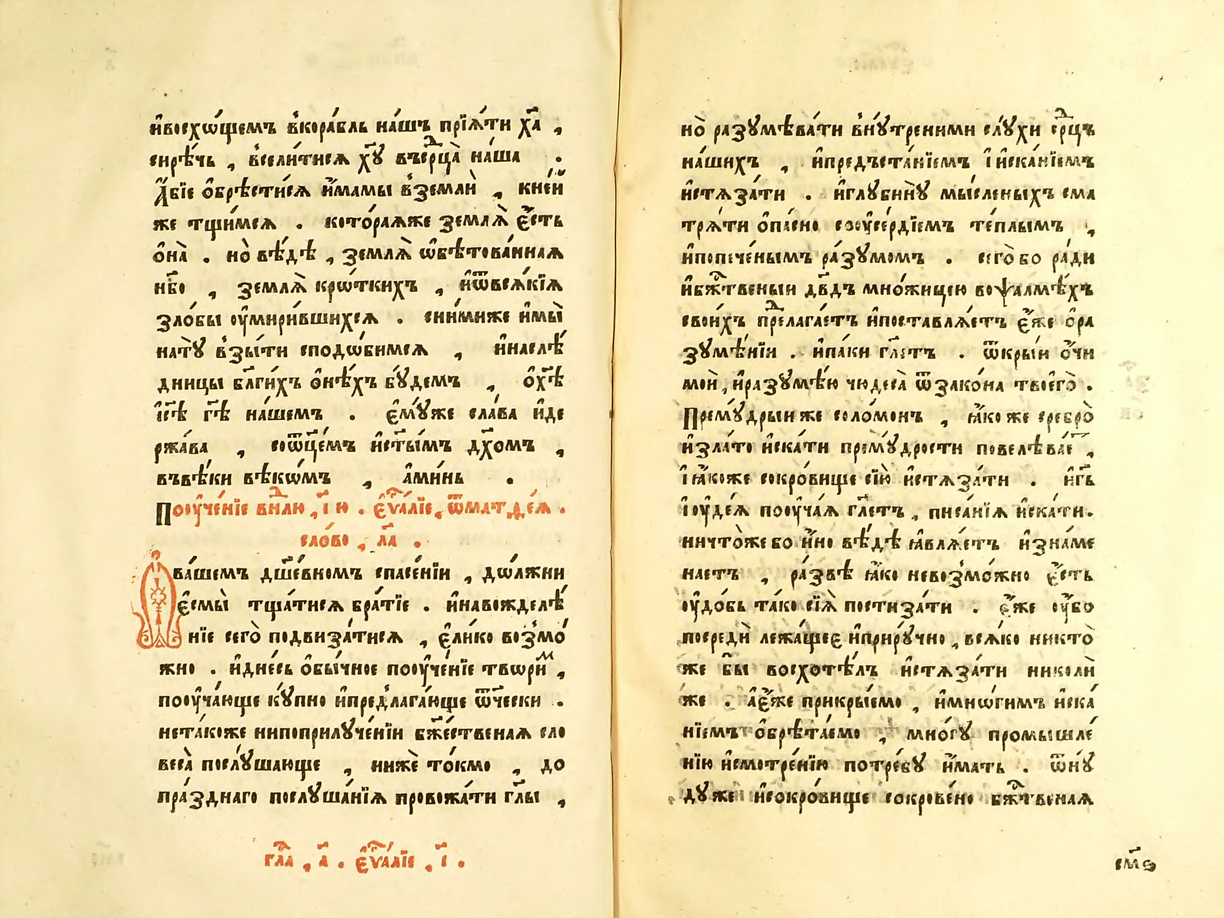 и҆восхѡ́щемъ в̾кора́бль на́шъ прїѧ́ти ха̀ ,
сирѣ́чь , всели́тисѧ хꙋ̀ въсрⷣца̀ на́ша .
А҆́бїе ѡ҆брѣ́стисѧ и҆́мамы в̾землѝ , кнеи́
же тщи́мсѧ . кото́раѧже землѧ̀ є҆́сть
о҆на̀ . но̀ вѣ́дѣ , землѧ̀ ѡ҆бѣтова́ннаѧ
нб҃о , землѧ̀ крѡ́ткихъ , и҆ѿвсѧ́кїѧ
зло́бы ᲂу҆мири́вшихсѧ . сни́миже и҆мы̀
на́тꙋ взы́ти сподѡ́бимсѧ , и҆наслѣ́
дницы бл҃ги́хъ о҆нѣ́хъ бꙋ́демъ , о҆хѣ҃
і҆се҃ гдⷭѣ на́шемъ . є҆мꙋ́же сла́ва и҆де
ржа́ва , соѿц҃е́мъ и҆ст҃ы́мъ дх҃омъ ,
въвѣ́ки вѣкѡ́мъ , а҆ми́нь .
Поᲂуче́нїе внⷣлю , і҃ ю . є҆ѵⷢ҇а́лїе , ѿматѳе́ѧ .
сло́во , ла҃ .
О ва́шемъ дш҃е́вномъ спасе́нїи , дѡлжни
є҆смы̀ тща́тисѧ бра́тїе . и҆навожделѣ́
нїе сего̀ подвиза́тисѧ , є҆ли́ко возмо́
жно . и҆дне́сь ѡ҆бы́чное поᲂуче́нїе твори́м ,
поᲂуча́юще кꙋ́пно и҆предлага́юще ѻ҆те́чески .
нетакоже нипоприлꙋче́нїи бж҃е́ственаѧ сло
веса̀ послꙋ́шающе , ниже́ то́кмо , до
пра́зднаго послꙋша́нїѧ провожа́ти гл҃ы ,
гла̀в , а҃ . є҆ѵⷢ҇а́лїе , і҃ .
но̀ разꙋмѣва́ти внꙋ́треними слꙋ́хи срⷣцъ
на́шихъ , и҆предъста́нїемъ і҆ иска́нїемъ
и҆стѧза́ти . и҆глꙋбинꙋ̀ мы́сленыхъ сма
трѧ́ти ѻ҆па́сно соᲂусе́рдїемъ те́плымъ ,
и҆попече́нымъ ра́зꙋмомъ . сего̀ бо ра́ди
и҆бжⷭ҇твеныи дв҃дъ мно́жицею воѱалмѣ́хъ
свои́хъ прⷣелага́етъ и҆поставлѧ́етъ є҆́же ѡ҆ра
зꙋмѣ́нїи . и҆па́ки гл҃етъ . ѿкры́и ѻ҆́чи
моѝ , и҆разꙋмѣ́ю чюдеса̀ ѿзако́на твоего̀ .
Премꙋ́дрыи же соломо́нъ , ꙗ҆́коже сребро̀
и҆зла́то и҆ска́ти премꙋ́дрости повелѣва́етъ ,
і҆ ꙗ҆́коже сокро́вище сїю̀ и҆стѧза́ти . и҆гь҃
і҆ю҆де́ѧ поᲂуча́ѧ гл҃етъ , писа́нїѧ и҆ска́ти .
ничто́же бо и҆но̀ вѣ́дѣ ꙗ҆влѧ́етъ и҆зна́ме
наетъ , ра́звѣ ꙗ҆́ко невозмо́жно є҆́сть
ᲂу҆до́бь та́ко сїѧ̀ пости́зати . є҆́же ᲂу҆́бо
посредѝ лежа́щее и҆прирꙋ́чно , всѧ́ко никто̀
же бы̀ восхотѣ́лъ и҆стѧза́ти николѝ
же . а҆є҆́же прикрые́мо , и҆мнѡ́гимъ и҆ска́
нїемъ ѡ҆брѣта́емо , мно́гꙋ промышле́
нїю и҆смотре́нїю потре́бꙋ и҆́мать . ѿнꙋ́
дꙋже и҆сокро́вище сокрове́но бжⷭ҇твенаѧ
сме҃